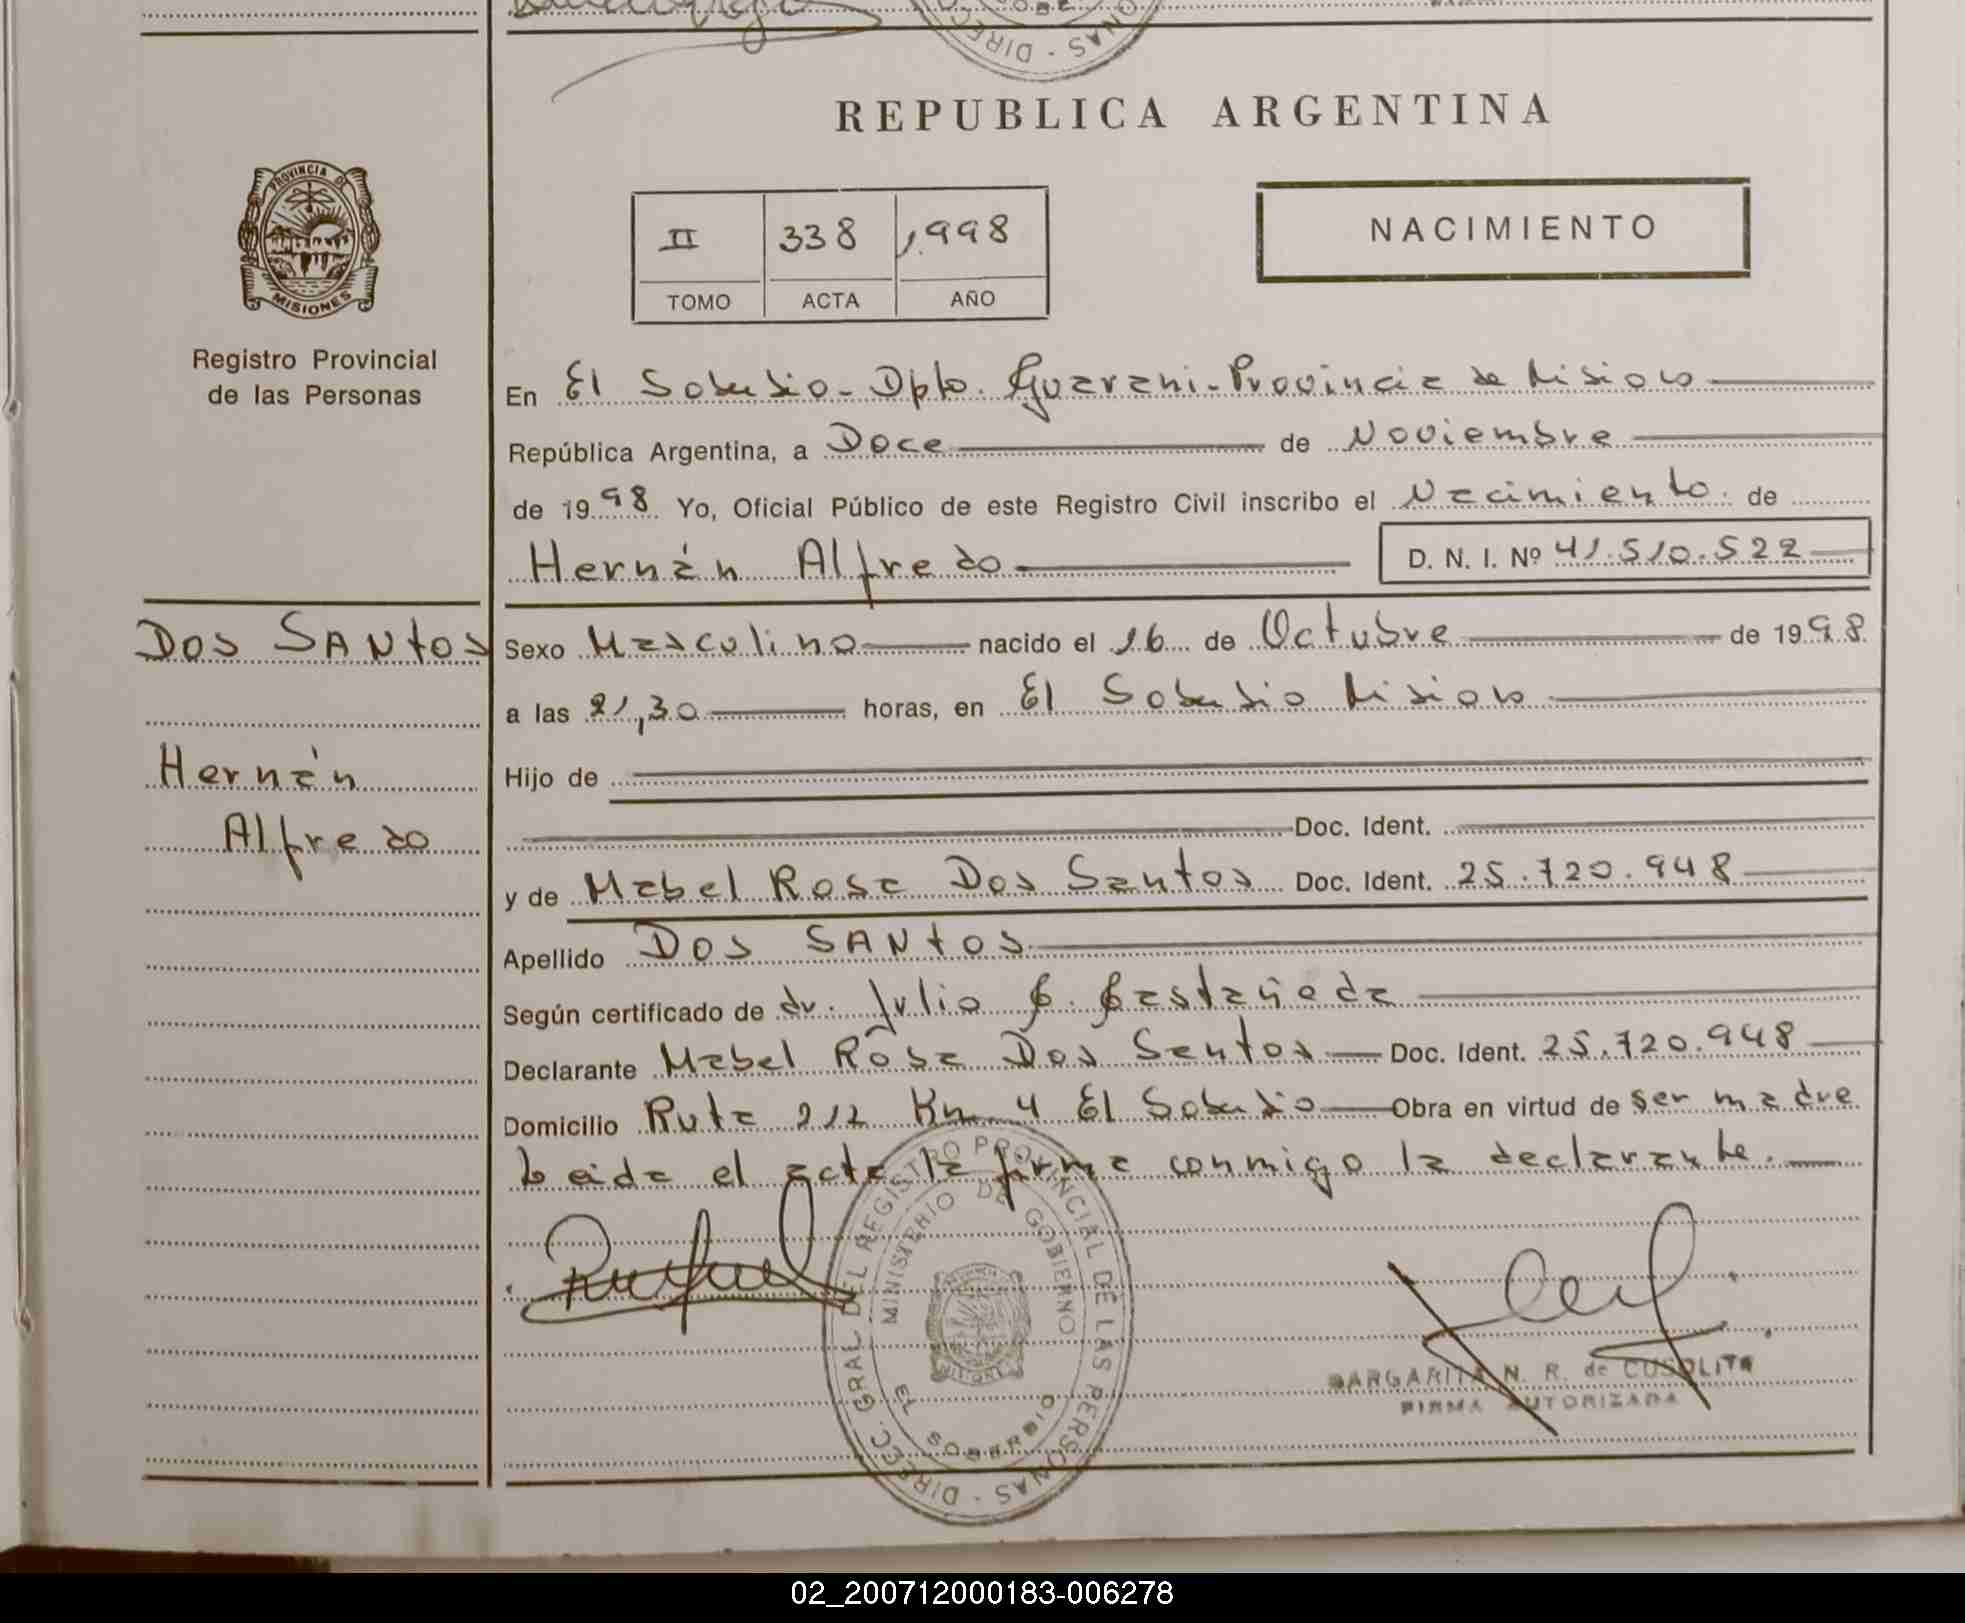 REPUBLICA ARGENTINA
PROVINCIA DE MISIONES
Registro Provincial
de las Personas
II 338 1.998
TOMO ACTA AÑO
NACIMIENTO
En El Soberbio - Dpto. Guarani - Provincia de Misiones
República Argentina, a Doce de Noviembre
de 1998 Yo, Oficial Público de este Registro Civil inscribo el Nacimiento de
Hernán Alfredo D. N. I. Nº 41.510.522
Dos SANtos
Hernán
Alfredo
Sexo Masculino nacido el 16 de Octubre de 1998
a las 21,30 horas, en El Soberbio Misiones
Hijo de
Doc. Ident.
y de Mabel Rosa Dos Santos Doc. Ident. 25.720.948
Apellido Dos SANtos
Según certificado de dr. Julio C. Castañeda
Declarante Mabel Rosa Dos Santos Doc. Ident. 25.720.948
Domicilio Ruta 212 Km 4 El Soberbio Obra en virtud de ser madre
Leida el acta la firma conmigo la declarante.
DIREC. GRAL DEL REGISTRO PROVINCIAL DE LAS PERSONAS
MINISTERIO DE GOBIERNO
EL SOBERBIO
MARGARITA N. R. de
FIRMA AUTORIZADA
02_200712000183-006278